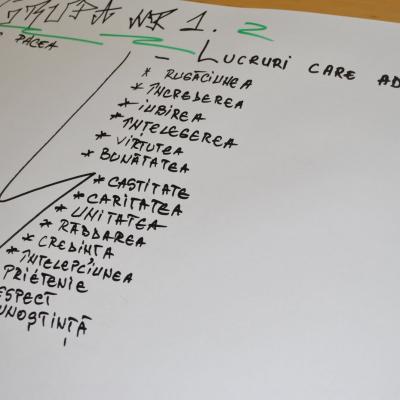 GRUPA NR 1. 2
PACEA
- LUCRURI CARE AD
* RUGĂCIUNEA
* ÎNCREDEREA
* IUBIREA
* ÎNȚELEGEREA
* VIRTUTEA
* BUNĂTATEA
* CASTITATE
* CARITATEA
* UNITATEA
* RĂBDAREA
* CREDINȚA
* ÎNTELEPCIUNEA
PRIETENIE
ESPECT
UNOȘTINȚĂ